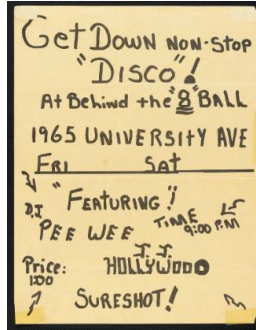 Get Down NON-STOP
"DISCO"!
At Behind the "8" BALL
1965 UNIVERSITY AVE
FRI SAT
"FEATURING"!
D.J PEE WEE TIME 9:00 P.M
J.J.
Price: HOLLYWOOD
1.00
SURESHOT!